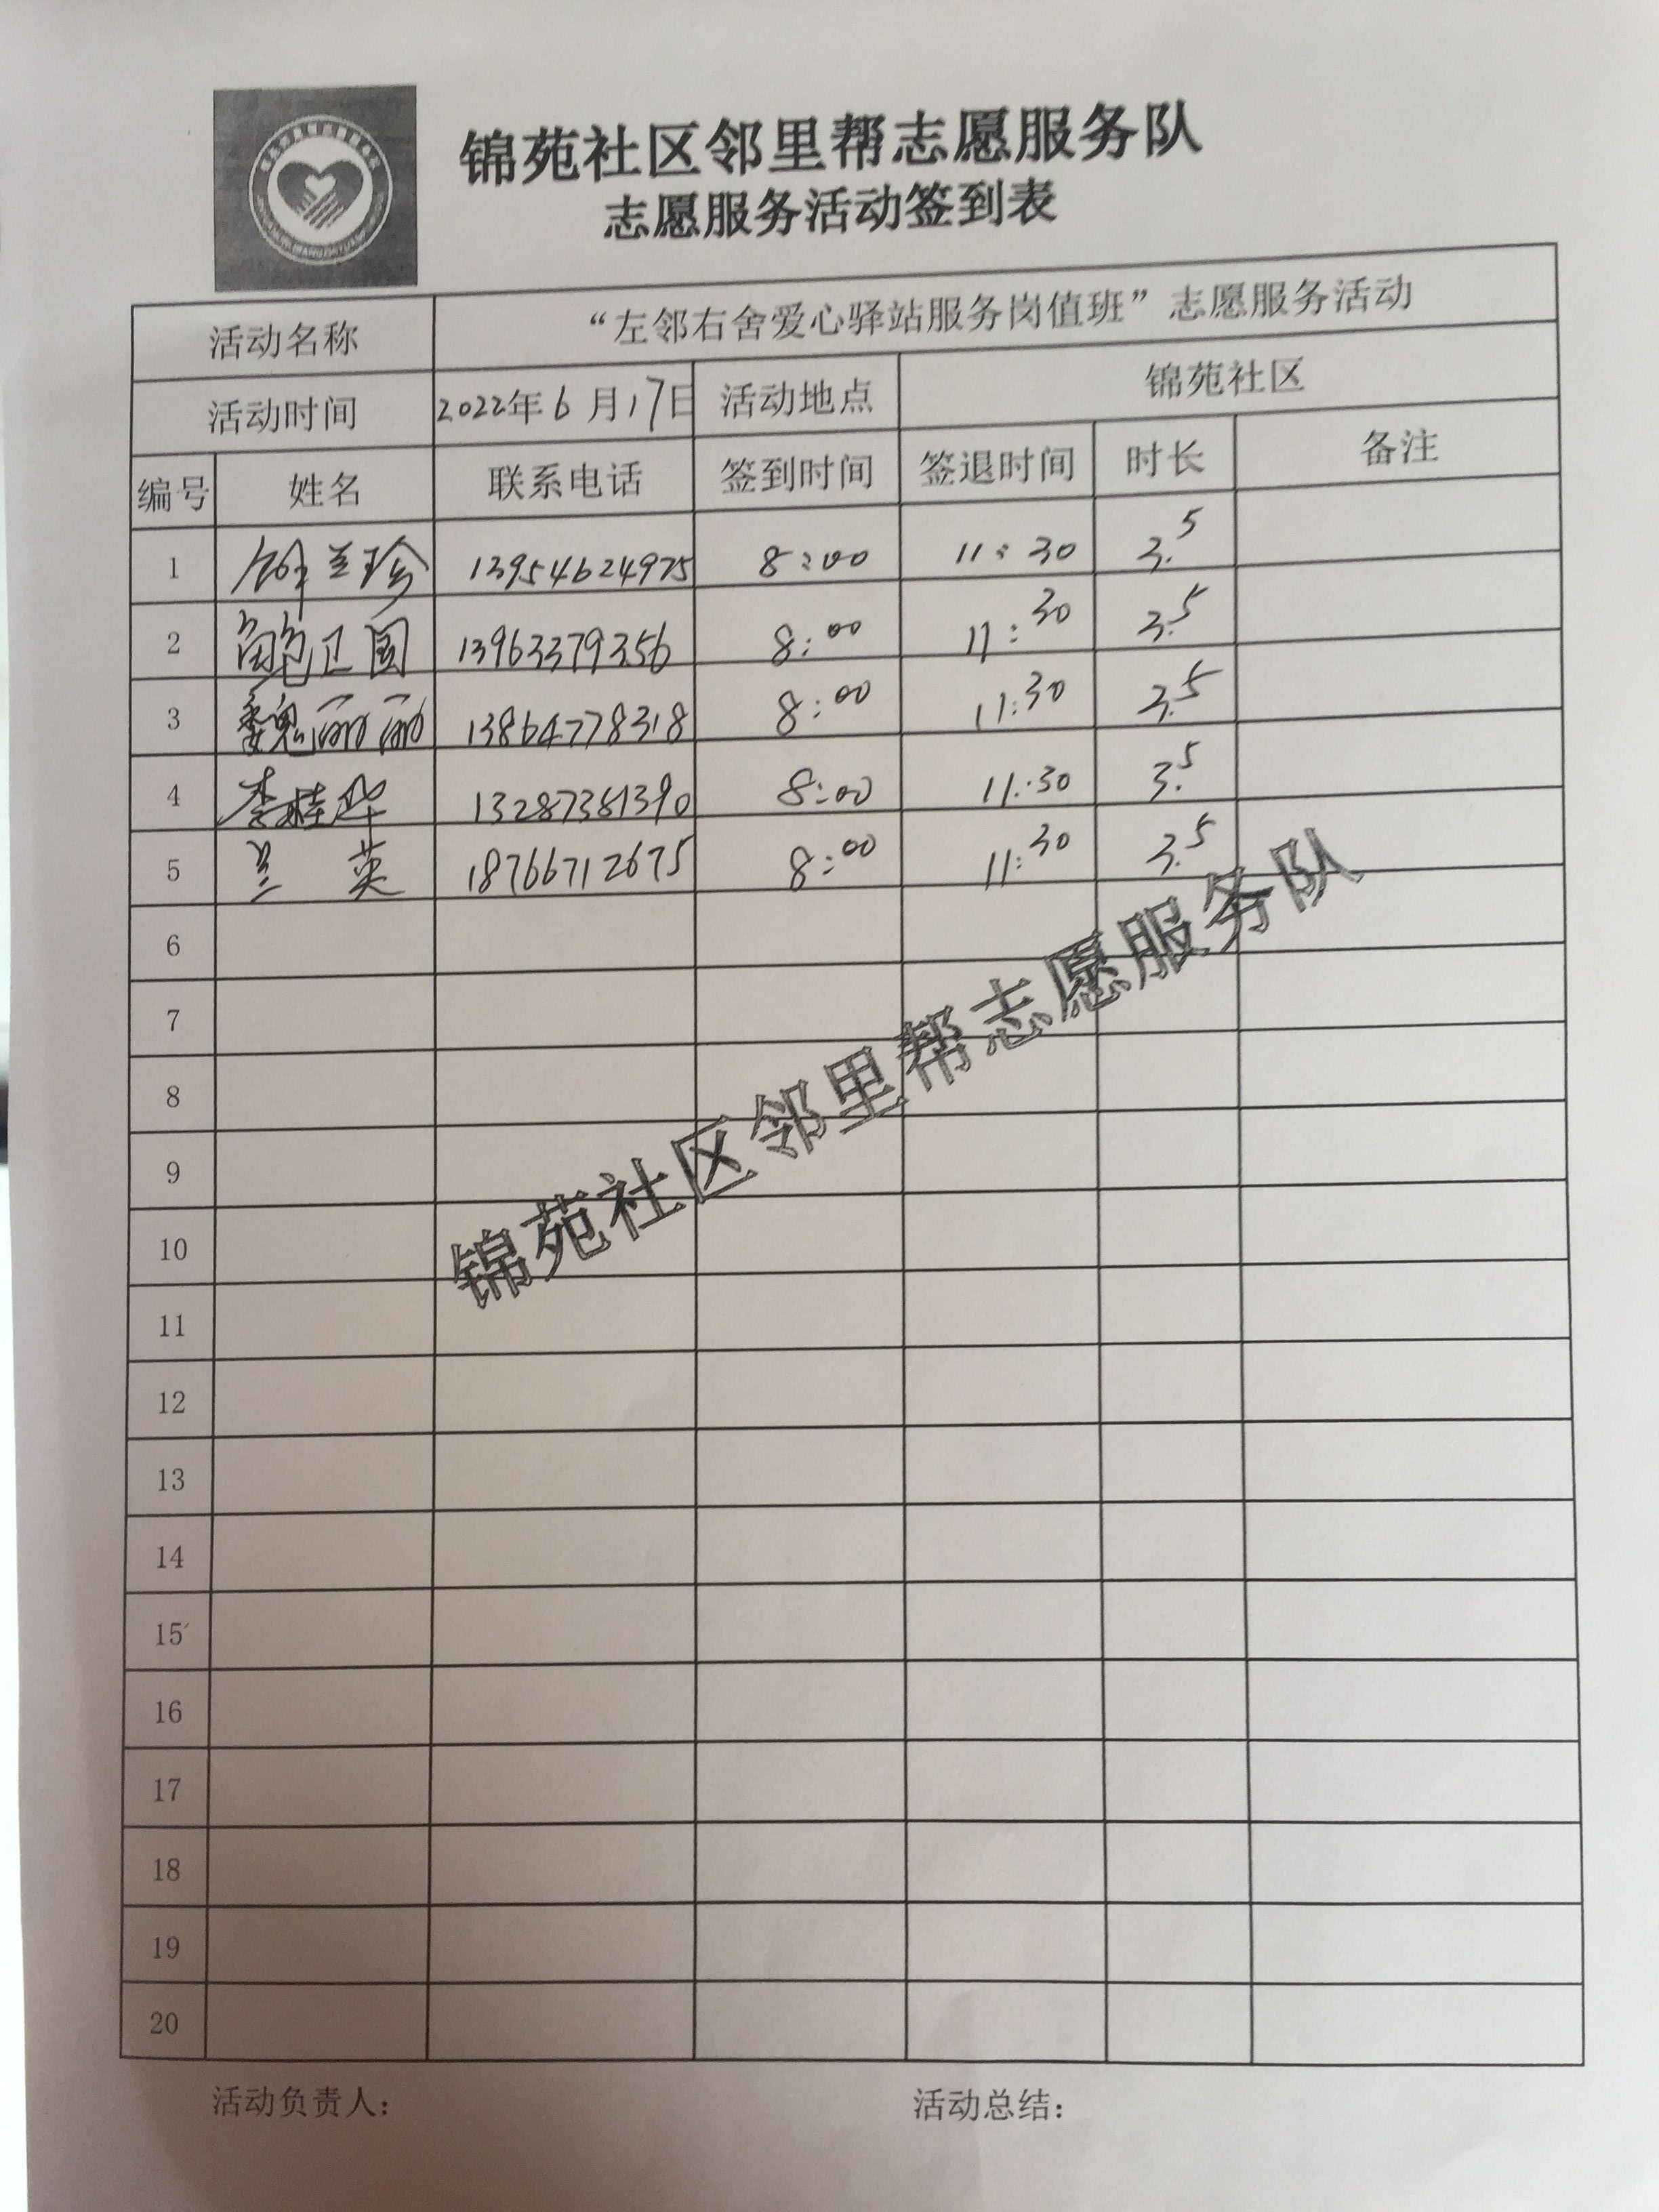 锦苑社区邻里帮志愿服务队
志愿服务活动签到表
活动名称 “左邻右舍爱心驿站服务岗值班”志愿服务活动
活动时间 2022年6月17日 活动地点 锦苑社区
编号 姓名 联系电话 签到时间 签退时间 时长 备注
1 兰珍 13954624975 8:00 11:30 3.5
2 卫国 13963379356 8:00 11:30 3.5
3 魏丽丽 13864778318 8:00 11:30 3.5
4 李桂华 13287381390 8:00 11:30 3.5
5 兰英 18766712675 8:00 11:30 3.5
6
7
8
9
10
11
12
13
14
15
16
17
18
19
20
锦苑社区邻里帮志愿服务队
活动负责人: 活动总结: